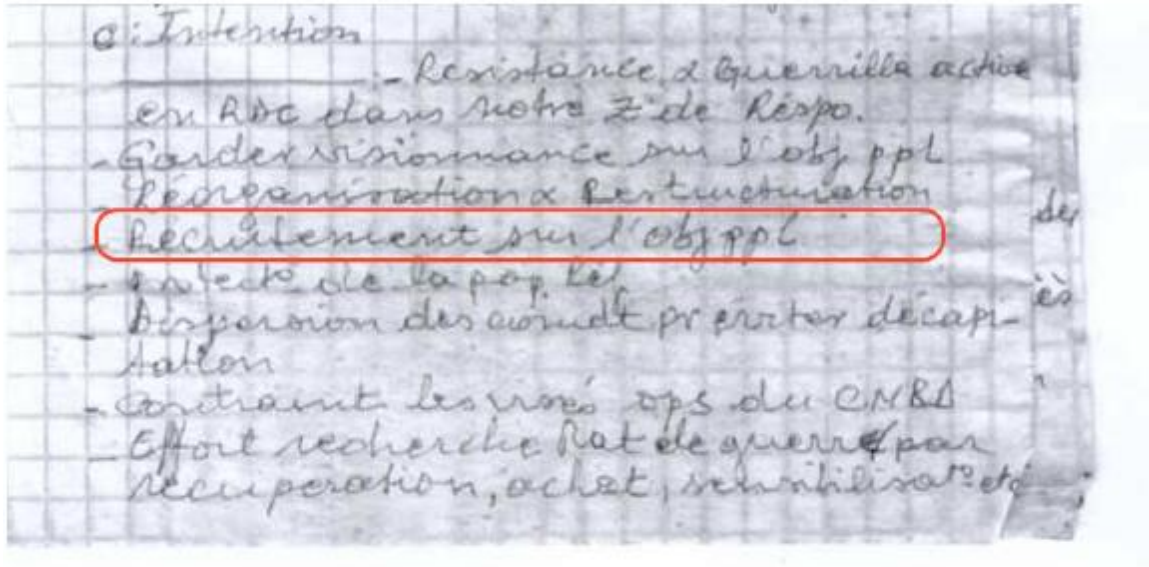 c: Intention
- Resistance & Guerrilla active
en RDC dans notre Z de Respo.
- Garder visionnance sur l'obj ppl
- Réorganisation & Restructuration
- Recrutement sur l'obj ppl
- de la pop
- Dispersion des comdt pr éviter décapi-
tation
- Contraint les ops du CNRD
- Effort recherche Mat de guerre par
récuperation, achat, sensibilisat° etc
der
ès